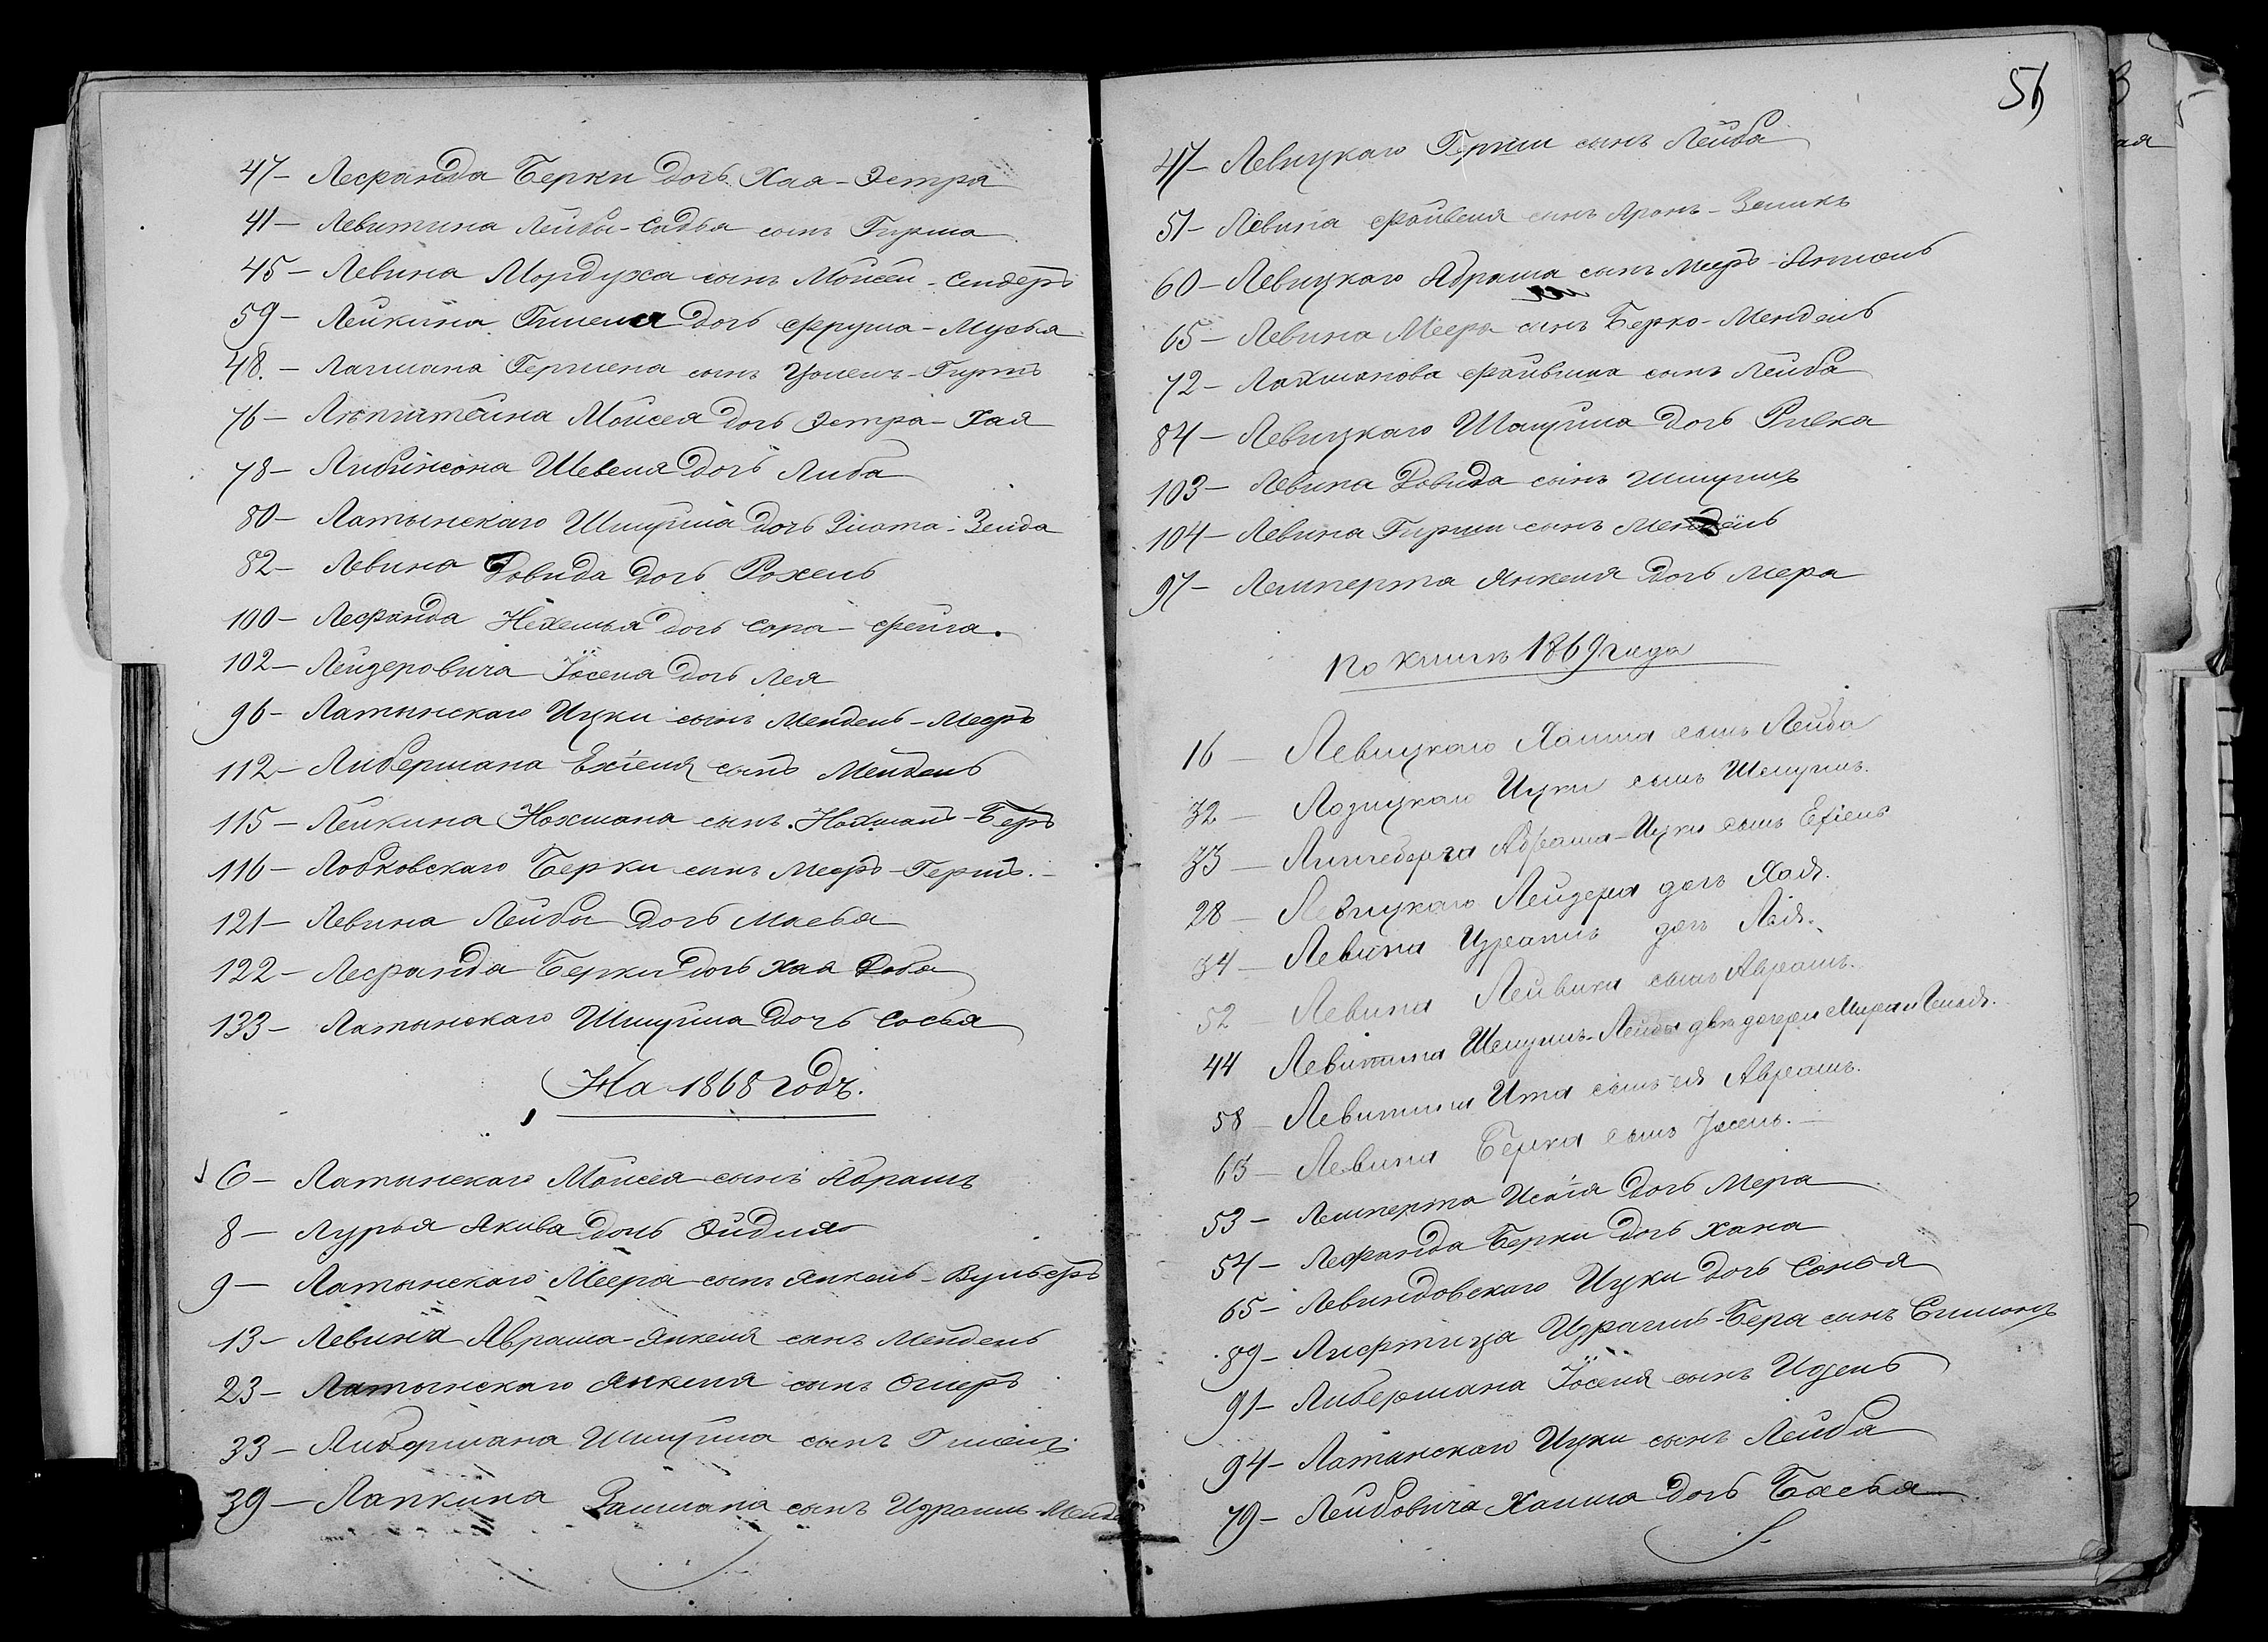 47 – Лефранда Берки дочь Хая-Эстра
41 – Левитина Лейбы-Садья сынъ Гирша
45 – Левина Мордуха сынъ Мойсей-Сендеръ
59 – Лейкина дочь Фрума-Мусья
48. – Лагмана сынъ
76 – Мойсея дочь Эстра-Хая
78 – Либинсона Шевеля дочь Либа
80 – Латынскаго Шмуйла дочь Злота-Зелда
82 – Левина Довида дочь Рохель
100 – Лефранда Нехемья дочь Сора-Фейга.
102 – Лейзеровича Іоселя дочь Лея
96 – Латынскаго Ицки сынъ Мендель-Мееръ
112 – Либермана Ехіеля сынъ Мендель
115 – Лейкина Нохмана сынъ Нохманъ-Беръ
116 – Лобковскаго Берки сынъ Мееръ-Гершъ.
121 – Левина Лейбы дочь
122 – Лефранда Берки дочь Хая Доба
133 – Латынскаго Шмуйла дочь Сосья
На 1868 годъ.
6 – Латынскаго Мойсея сынъ Абрамъ
8 – Лурья Акива дочь
9 – Латынскаго Меера сынъ Янкель-Вульфъ
13 – Левина Абрама-Янкеля сынъ Мендель
23 – Латынскаго Янкеля сынъ Ошеръ
33 – Либермана Шмуйла сынъ
39 – Лапкина Залмана сынъ Израиль-Менд
56
47 – Левицкаго Герши сынъ Лейба
51 – Левина Файвеля сынъ Аронъ-Зеликъ
60 – Левицкаго Абрама сынъ Мееръ-
65 – Левина Меера сынъ Берко-Мендель
72 – Лахманова Файвиша сынъ Лейба
84 – Левицкаго Шмуйла дочь Ривка
103 – Левина Довида сынъ Шмуилъ
104 – Левина Гирши сынъ Мендель
97 – Лемперта Янкеля дочь Мера
По книгѣ 1869 года
16 – Левицкаго Хаима сынъ Лейба
32 – Лозицкаго Ицки сынъ Шмуилъ.
33 – Абрама-Ицки сынъ Ехіель
28 – Левицкаго Лейзера дочь Хая.
34 – Левина Израиль дочь Лея.
52 – Левина Лейвика сынъ Абрамъ.
44 Левитина Шмуилъ-Лейбы двѣ дочери Мира и
58 – Левитина Ита сынъ ея Абрамъ.
63 – Левина Берка сынъ Іосель. –
53 – Лемперта Исаія дочь Мера
54 – Лефранда Берки дочь Хана
65 – Левиндовскаго Ицки дочь Сонья
89 – Лифшица Израиль-Бера сынъ Симонъ
91 – Либермана Іоселя сынъ Юдель
94 – Латынскаго Ицки сынъ Лейба
79 – Лейбовича Хаима дочь Басья